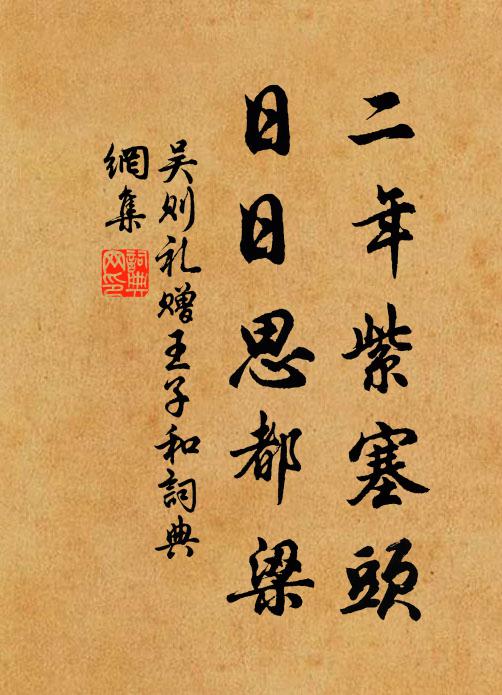 二年紫塞頭
日日思都梁
吴则礼赠王子和詞典
網集
詞典
网印